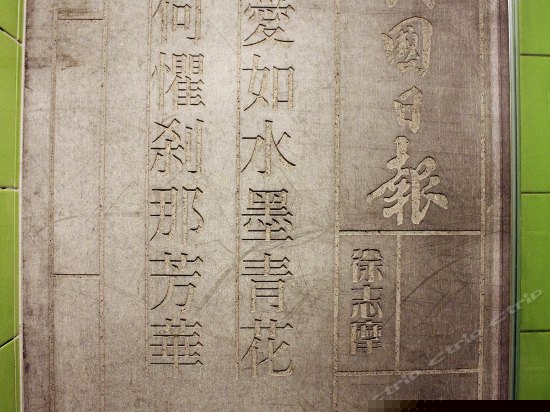 國日報
徐志摩
愛如水墨青花
何懼刹那芳華
ctrip ctrip ctrip